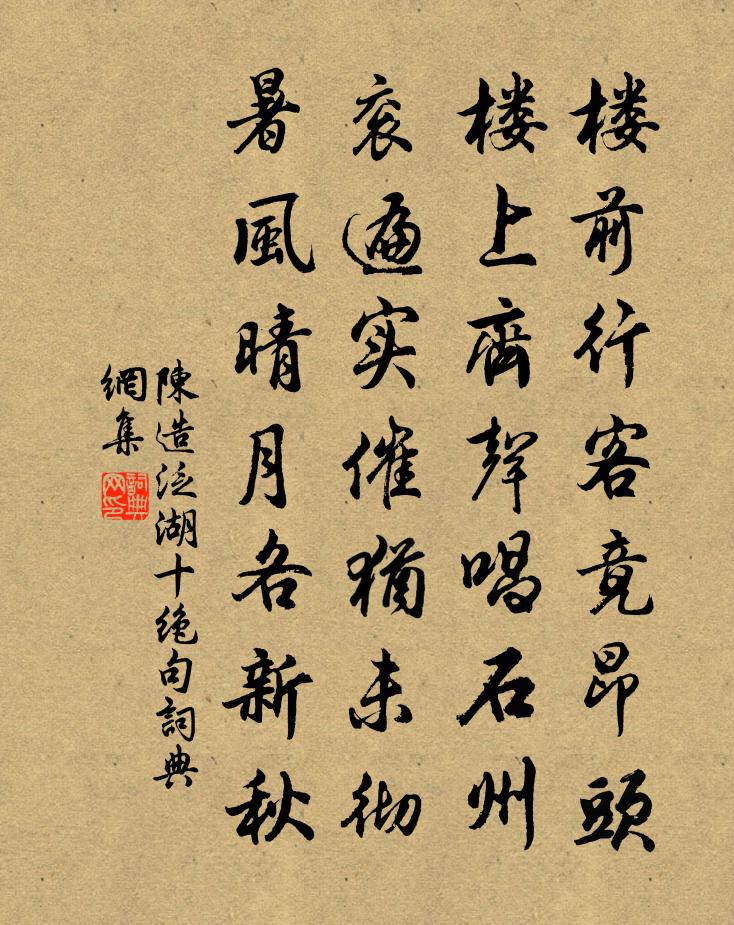 楼前行客竟昂頭
楼上齊聲唱石州
衮遍实催猶未彻
暑風晴月各新秋
陳造泛湖十绝句詞典
網集
詞典
网印